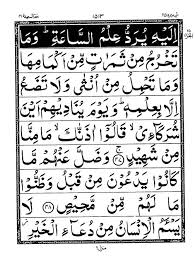 اِلَيْهِ يُرَدُّ عِلْمُ السَّاعَةِ ؕ وَمَا
تَخْرُجُ مِنْ ثَمَرٰتٍ مِّنْ اَكْمَامِهَا
وَمَا تَحْمِلُ مِنْ اُنْثٰى وَلَا تَضَعُ
اِلَّا بِعِلْمِهٖ ؕ وَيَوْمَ يُنَادِيْهِمْ اَيْنَ
شُرَكَآءِىْ ۙ قَالُوْۤا اٰذَنّٰكَ ۙ مَا مِنَّا
مِنْ شَهِيْدٍ ۚ ﴿۴۷﴾ وَضَلَّ عَنْهُمْ مَّا
كَانُوْا يَدْعُوْنَ مِنْ قَبْلُ وَظَنُّوْا
مَا لَهُمْ مِّنْ مَّحِيْصٍ ﴿۴۸﴾ لَا
يَسْـَٔمُ الْاِنْسَانُ مِنْ دُعَآءِ الْخَيْرِ